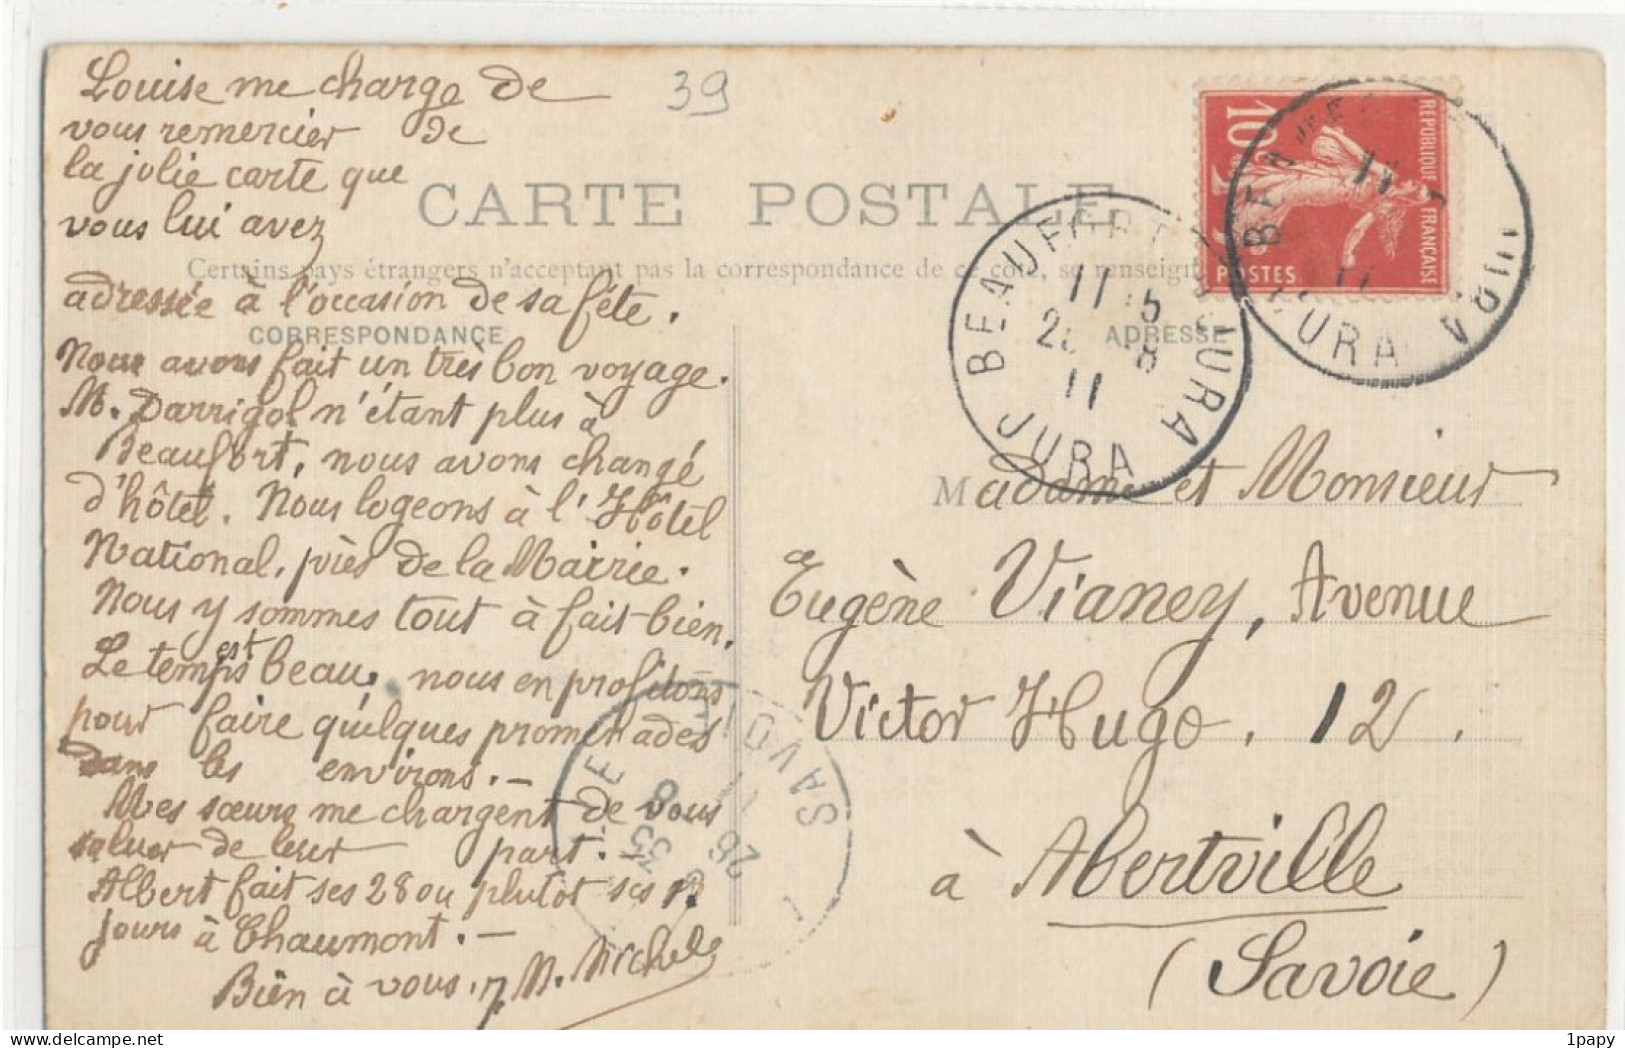 Louise me charge de
vous remercier de
la jolie carte que
vous lui avez
adressée à l'occasion de sa fête.
Nous avons fait un très bon voyage.
M. Darrigol n'étant plus à
Beaufort, nous avons changé
d'hôtel. Nous logeons à l'Hôtel
National, près de la Mairie.
Nous y sommes tout à fait bien.
Le temps est beau, nous en profitons
pour faire quelques promenades
dans les environs.—
Mes sœurs me chargent de vous
saluer de leur part.—
Albert fait ses 28 ou plutot ses
jours à Chaumont.—
Bien à vous.
39
CARTE POSTALE
Certains pays étrangers n'acceptant pas la correspondance de ce côté, se renseign
CORRESPONDANCE
ADRESSE
REPUBLIQUE FRANÇAISE
10
POSTES
BEAUFORT
11
11
JURA
JURA
JURA
Madame et Monsieur
Eugène Vianey, Avenue
Victor Hugo. 12.
à Abertville
(Savoie)
SAVOIE
1papy